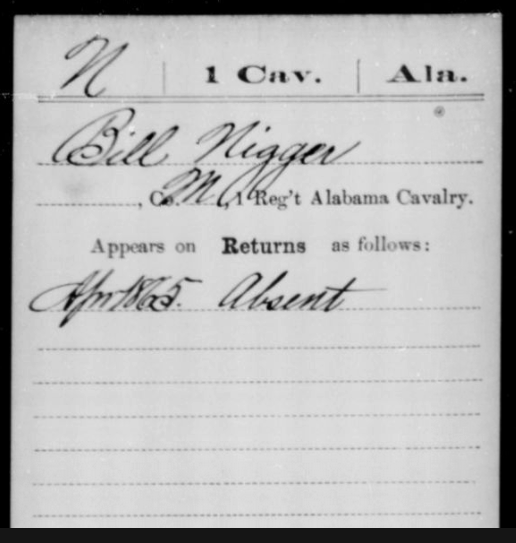 N | 1 Cav. | Ala.
Bill Nigger
, Co. M, 1 Reg't Alabama Cavalry.
Appears on Returns as follows:
Apr 1865. Absent